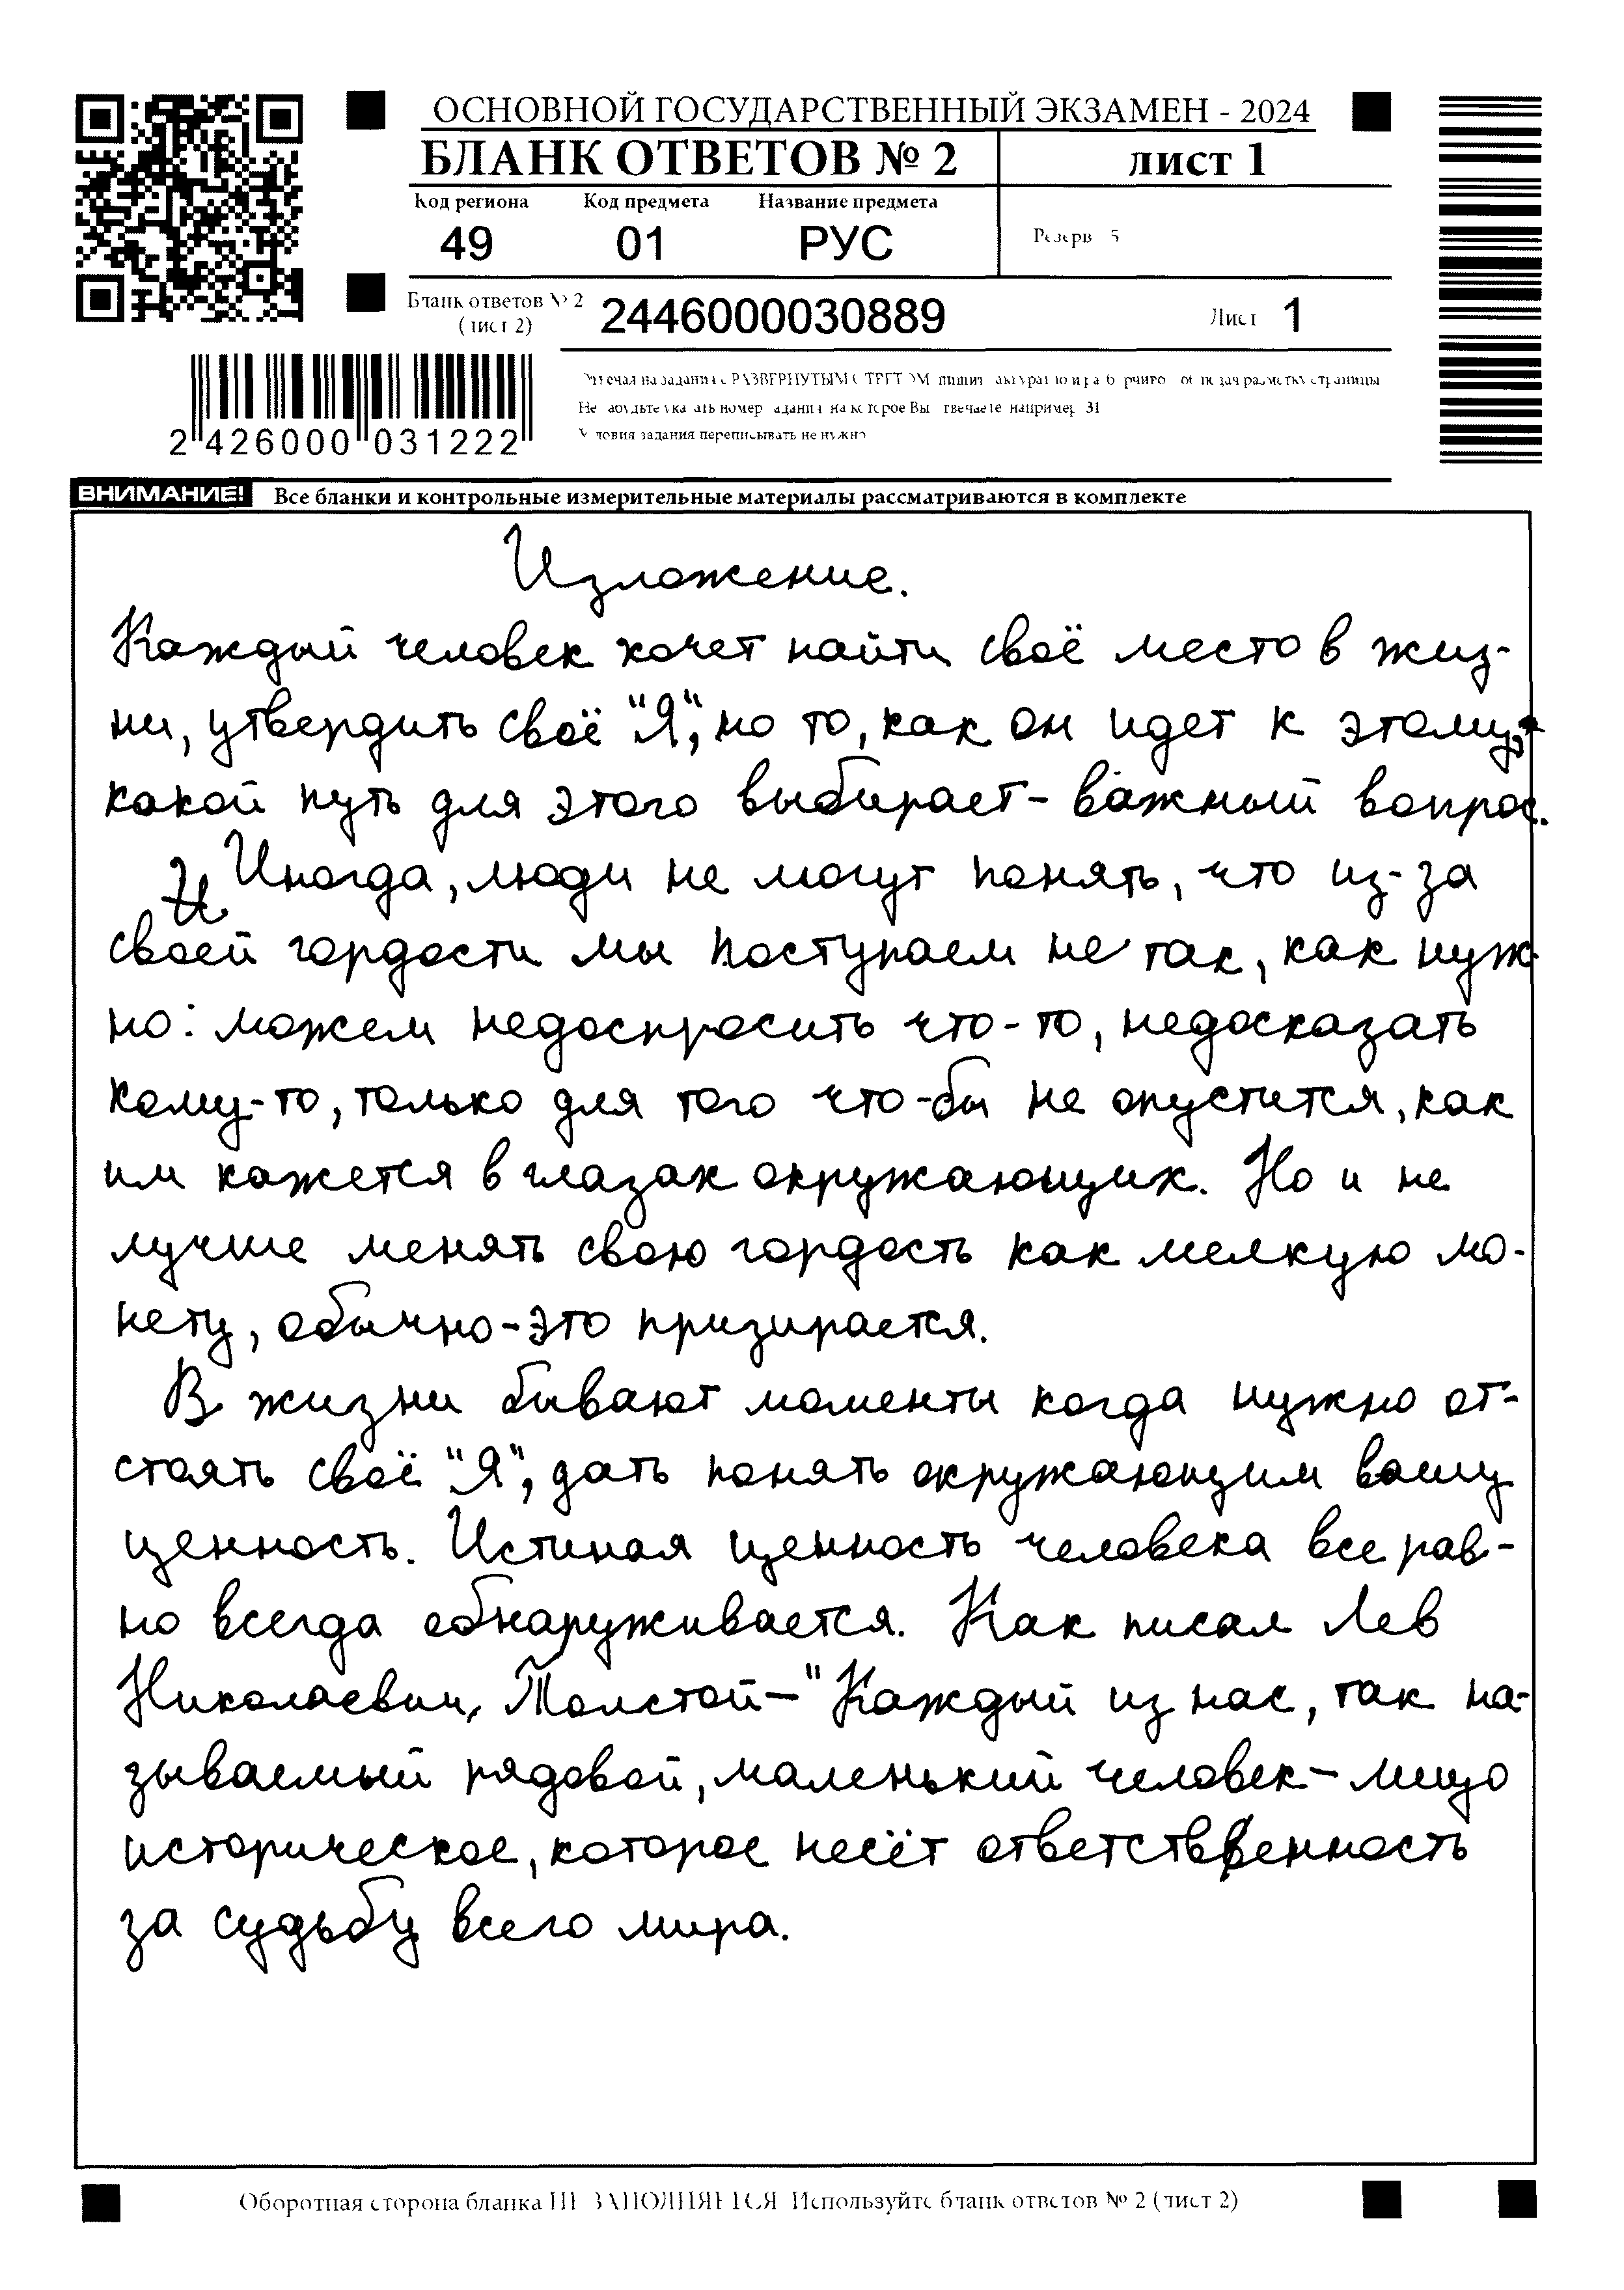 ОСНОВНОЙ ГОСУДАРСТВЕННЫЙ ЭКЗАМЕН - 2024
БЛАНК ОТВЕТОВ № 2 лист 1
Код региона Код предмета Название предмета
49 01 РУС Резерв 5
Бланк ответов № 2
(лист 2) 2446000030889 Лист 1
2 426000 031222
Условия задания переписывать не нужно
ВНИМАНИЕ! Все бланки и контрольные измерительные материалы рассматриваются в комплекте
Изложение.
Каждый человек хочет найти своё место в жиз-
ни, утвердить своё "Я", но то, как он идет к этому,
какой путь для этого выбирает - важный вопрос.
Иногда, люди не могут понять, что из-за
своей гордости мы поступаем не так, как нуж-
но: можем недоспросить что-то, недосказать
кому-то, только для того что-бы не опустится, как
им кажется в глазах окружающих. Но и не
лучше менять свою гордость как мелкую мо-
нету, обычно-это призирается.
В жизни бывают моменты когда нужно от-
стоять своё "Я", дать понять окружающим вашу
ценность. Истиная ценность человека все рав-
но всегда обнаруживается. Как писал Лев
Николаевич Толстой - "Каждый из нас, так на-
зываемый рядовой, маленький человек - лицо
историческое, которое несёт ответственность
за судьбу всего мира.
Оборотная сторона бланка НЕ ЗАПОЛНЯЕТСЯ. Используйте бланк ответов № 2 (лист 2)